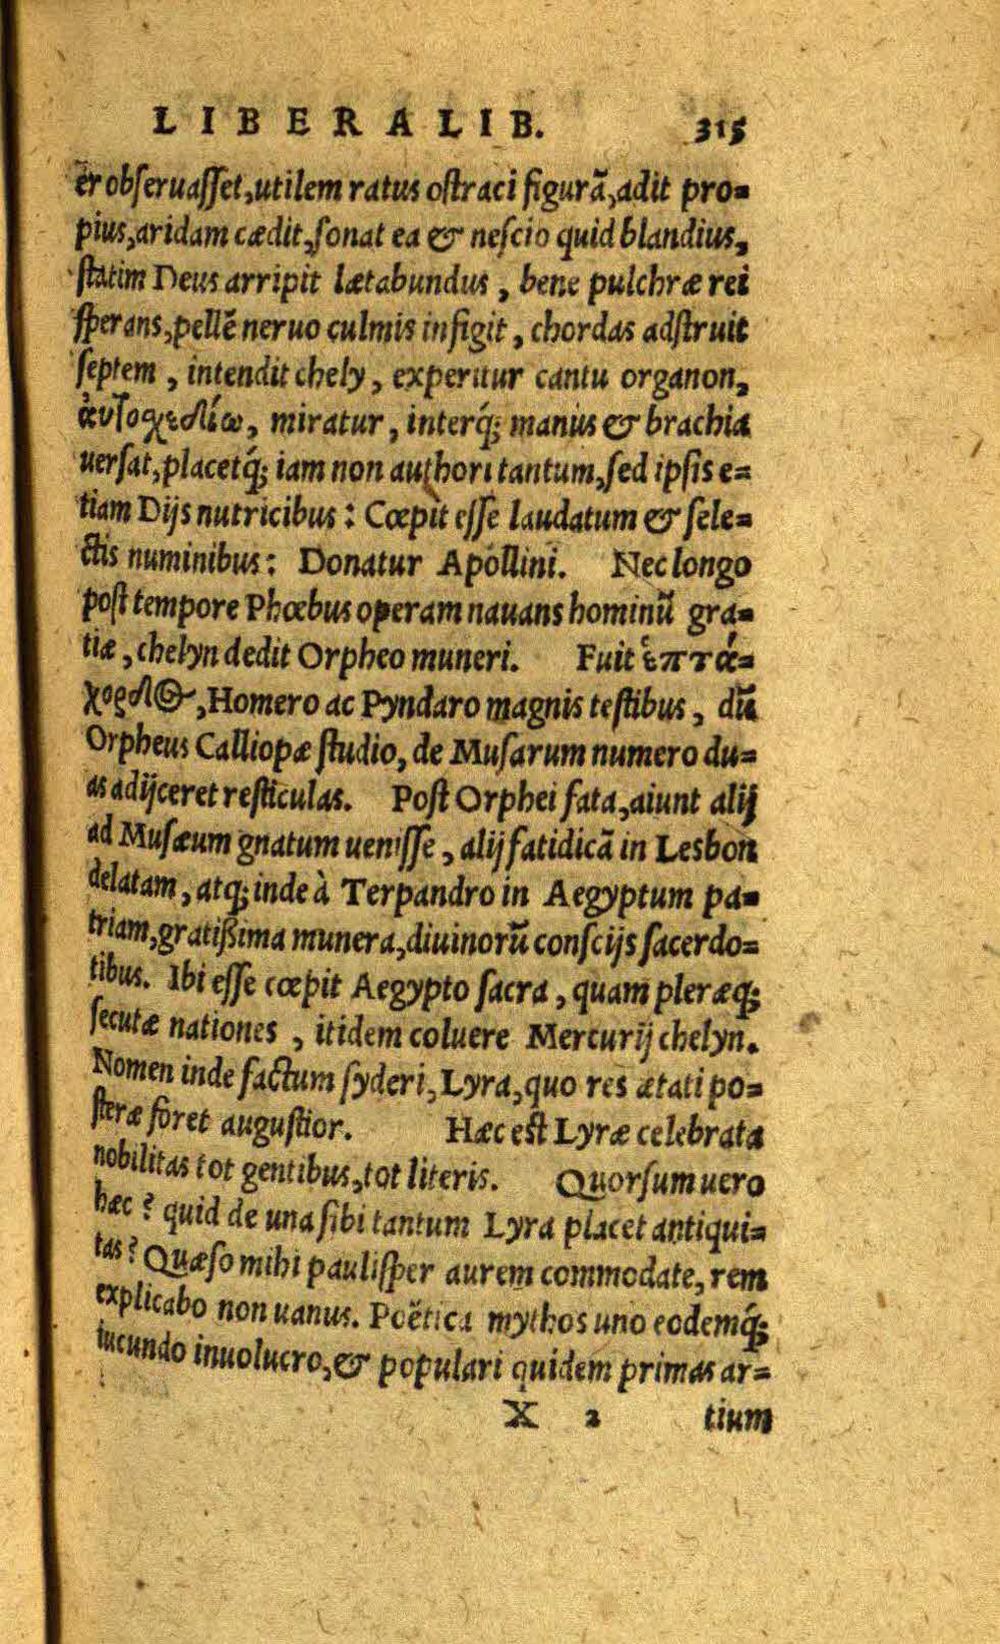 LIBERALIB. 315
er obſeruaſſet, utilem ratus oſtraci figurã, adit pro=
pius, aridam cædit, ſonat ea & neſcio quid blandius,
ſtatim Deus arripit lætabundus, bene pulchræ rei
ſperans, pellẽ neruo culmis infigit, chordas adſtruit
ſeptem, intendit chely, experitur cantu organon,
ἀυτοχεδίω, miratur, interq́; manus & brachia
uerſat, placetq́; iam non authori tantum, ſed ipſis e=
tiam Dijs nutricibus: Cœpit eſſe laudatum & ſele=
ctis numinibus: Donatur Apollini. Nec longo
poſt tempore Phœbus operam nauans hominũ gra=
tiæ, chelyn dedit Orpheo muneri. Fuit ἑπτά=
χορδΘ, Homero ac Pyndaro magnis teſtibus, dũ
Orpheus Calliopæ ſtudio, de Muſarum numero du=
as adijceret reſticulas. Poſt Orphei fata, aiunt alij
ad Muſæum gnatum ueniſſe, alij fatidicã in Lesbon
delatam, atq; inde à Terpandro in Aegyptum pa=
triam, gratißima munera, diuinorũ conſcijs ſacerdo=
tibus. Ibi eſſe cœpit Aegypto ſacra, quam pleræq;
ſecutæ nationes, itidem coluere Mercurij chelyn.
Nomen inde factum ſyderi, Lyra, quo res ætati po=
ſteræ foret auguſtior. Hæc eſt Lyræ celebrata
nobilitas tot gentibus, tot literis. Quorſum uero
hæc? quid de una ſibi tantum Lyra placet antiqui=
tas? Quæſo mihi pauliſper aurem commodate, rem
explicabo non uanus. Poëtica mythos uno eodemq́;
iucundo inuolucro, & populari quidem primas ar=
X 2 tium